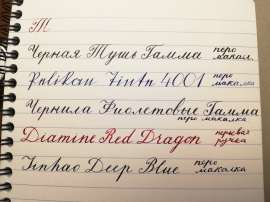 Т
Черная Тушь Гамма перо макал.
Pelikan Tinte 4001 перо макалка
Чернила Фиолетовые Гамма
перо макалка
Diamine Red Dragon перьевая ручка
Jinhao Deep Blue перо макалка